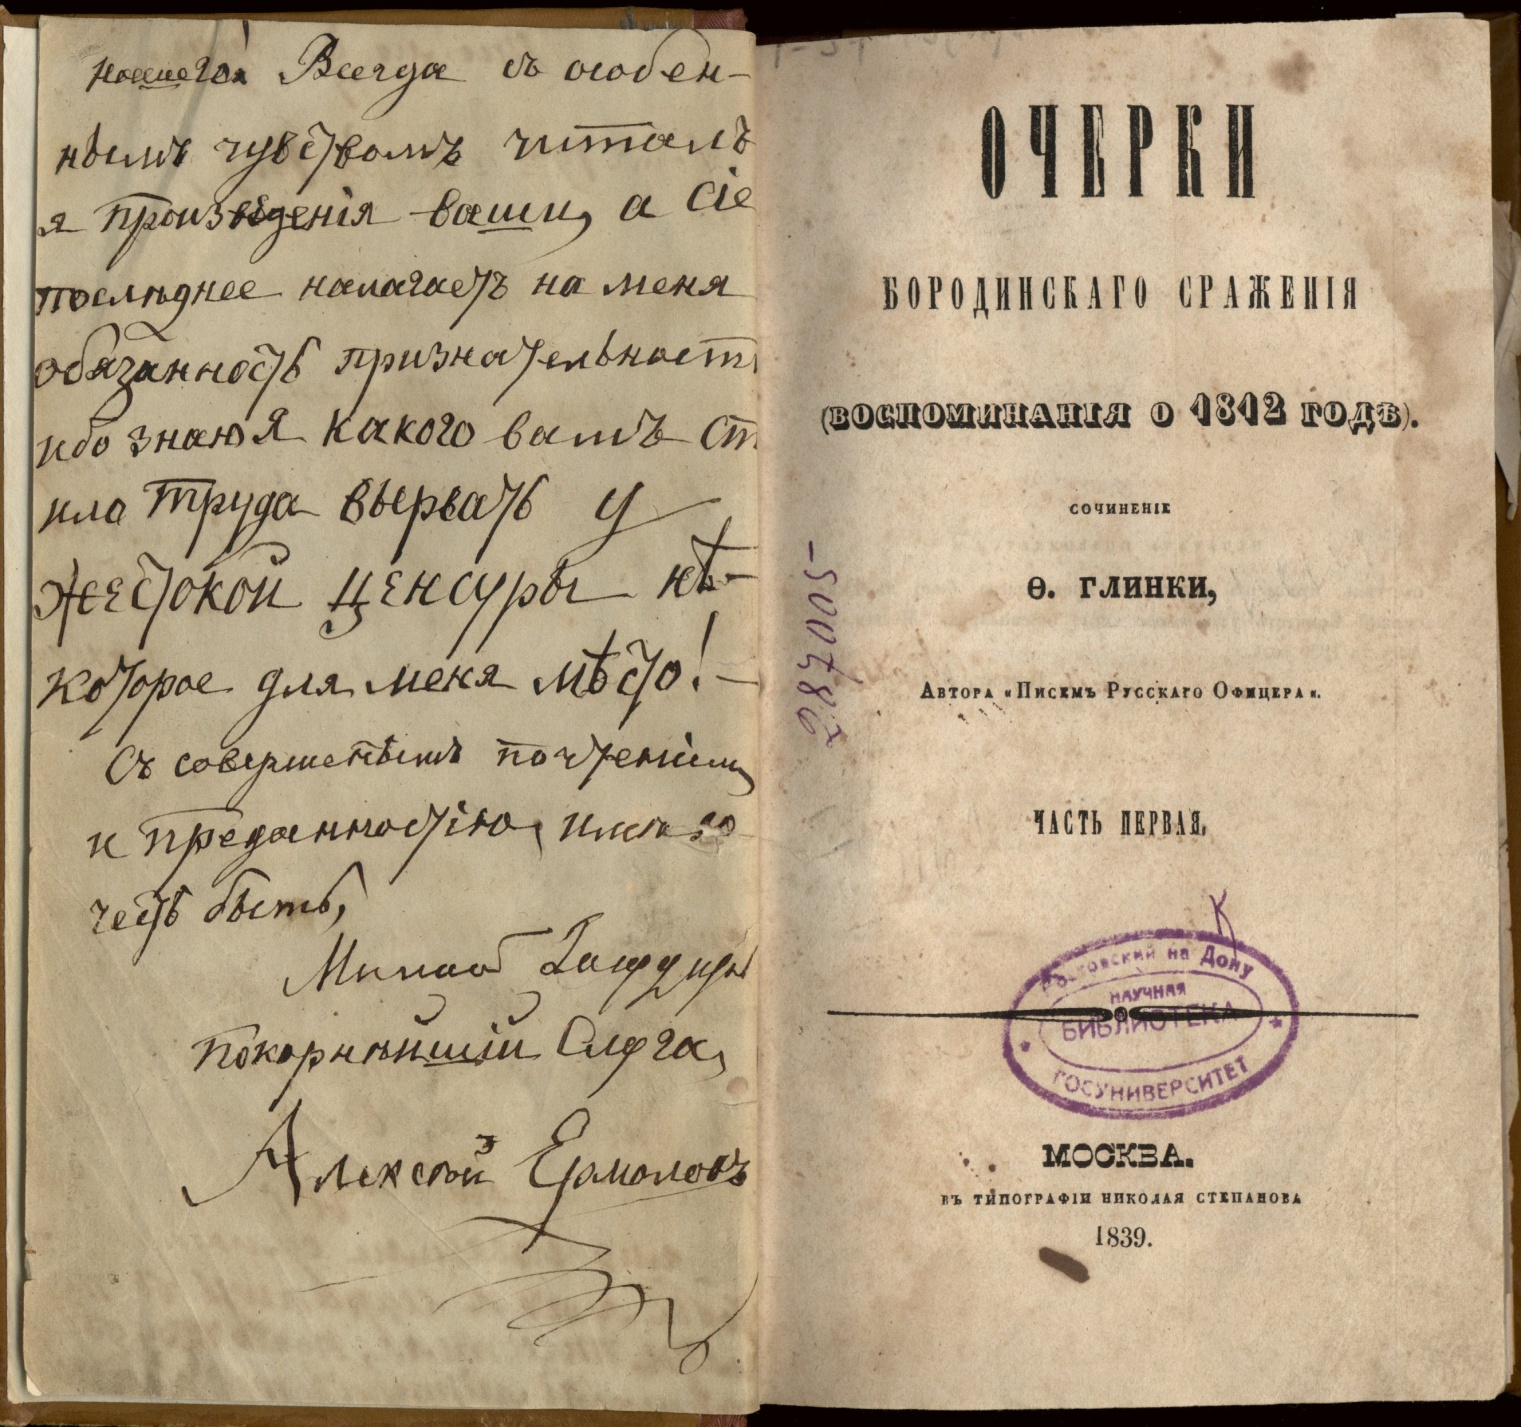 нашего! Всегда съ особен-
нымъ чувствомъ читалъ
я произведенія ваши, а сіе
последнее налагаетъ на меня
обязанность признательност
ибо знаю я какого вамъ ст
ило труда вырвать у
жестокой ценсуры нѣ-
которое для меня мѣсто! -
Съ совершеннымъ почтеніемъ
и преданностію, имею
честь быть,
Покорнейшій Слуга,
Алексей Ермоловъ
ОЧЕРКИ
БОРОДИНСКАГО СРАЖЕНІЯ
(ВОСПОМИНАНІЯ О 1812 ГОДѢ).
СОЧИНЕНІЕ
Ѳ. ГЛИНКИ,
АВТОРА «ПИСЕМЪ РУССКАГО ОФИЦЕРА».
287005-
ЧАСТЬ ПЕРВАЯ.
К
Ростовский на Дону
НАУЧНАЯ
БИБЛИОТЕКА
ГОСУНИВЕРСИТЕТ
МОСКВА.
ВЪ ТИПОГРАФІИ НИКОЛАЯ СТЕПАНОВА
1839.